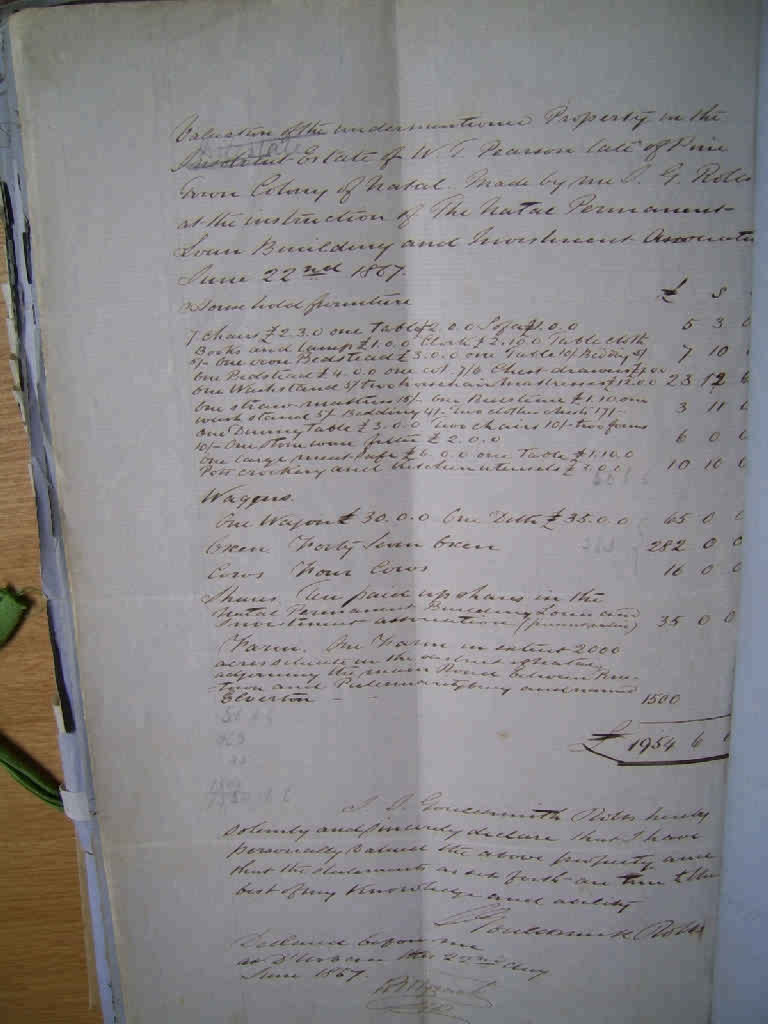 Valuation of the undermentioned Property in the
Insolvent Estate of W. T. Pearson late of Pine
Intestate
Town Colony of Natal. Made by me J. G. Roles
at the instruction of The Natal Permanent
Loan Building and Investment Association
June 22nd 1867.
£ S
Household furniture
7 chairs £2.3.0 one Table £2.0.0 Sofa £1.0.0 5 3 0
Books and Lamp £1.0.0 Clock £2.10.0 Table cloth
5/- one iron Bedstead £3.0.0 one Table 10/ Bedding 5/ 7 10 0
One Bedstead £4.0.0 one cot 7/6 Chest drawers
one Washstand 5/ two horsehair mattresses £12.00 23 12 6
One straw mattress 15/- one £1.10 one
wash stand 5/ Bedding 4/- Two clothes 17/- 3 11 0
One Dining table £3.0.0 Two chairs 10/- two forms
10/- One Stone ware filter £2.0.0 6 0 0
One large meat safe £6.0.0 one Table £1.10.0
Pots crockery and kitchen utensils £3.0.0 10 10 0
Waggons.
One Wagon £30.0.0 One Ditto £35.0.0 65 0 0
Oxen Forty Seven Oxen 282 0 0
Cows Four Cows 16 0 0
Shares. Ten paid up shares in the
Natal Permanent Building Loan and
Investment association 35 0 0
Farm. One Farm in extent 2000
acres situate in the district of Natal
adjoining the main Road between Pine
town and Pietermaritzburg and named
Elverton - - 1500
£ 1954 6
I J. Gouldsmith Roles hereby
solemnly and sincerely declare that I have
personally valued the above property and
that the statements as set forth are true to the
best of my knowledge and ability
J Gouldsmith Roles
Declared before me
at D'Urban this 22nd day
June 1867.